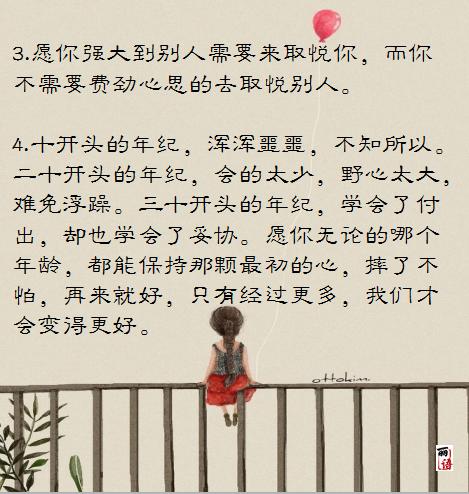 3.愿你强大到别人需要来取悦你，而你
不需要费劲心思的去取悦别人。
4.十开头的年纪，浑浑噩噩，不知所以。
二十开头的年纪，会的太少，野心太大，
难免浮躁。三十开头的年纪，学会了付
出，却也学会了妥协。愿你无论的哪个
年龄，都能保持那颗最初的心，摔了不
怕，再来就好，只有经过更多，我们才
会变得更好。
ottokim.
丽语